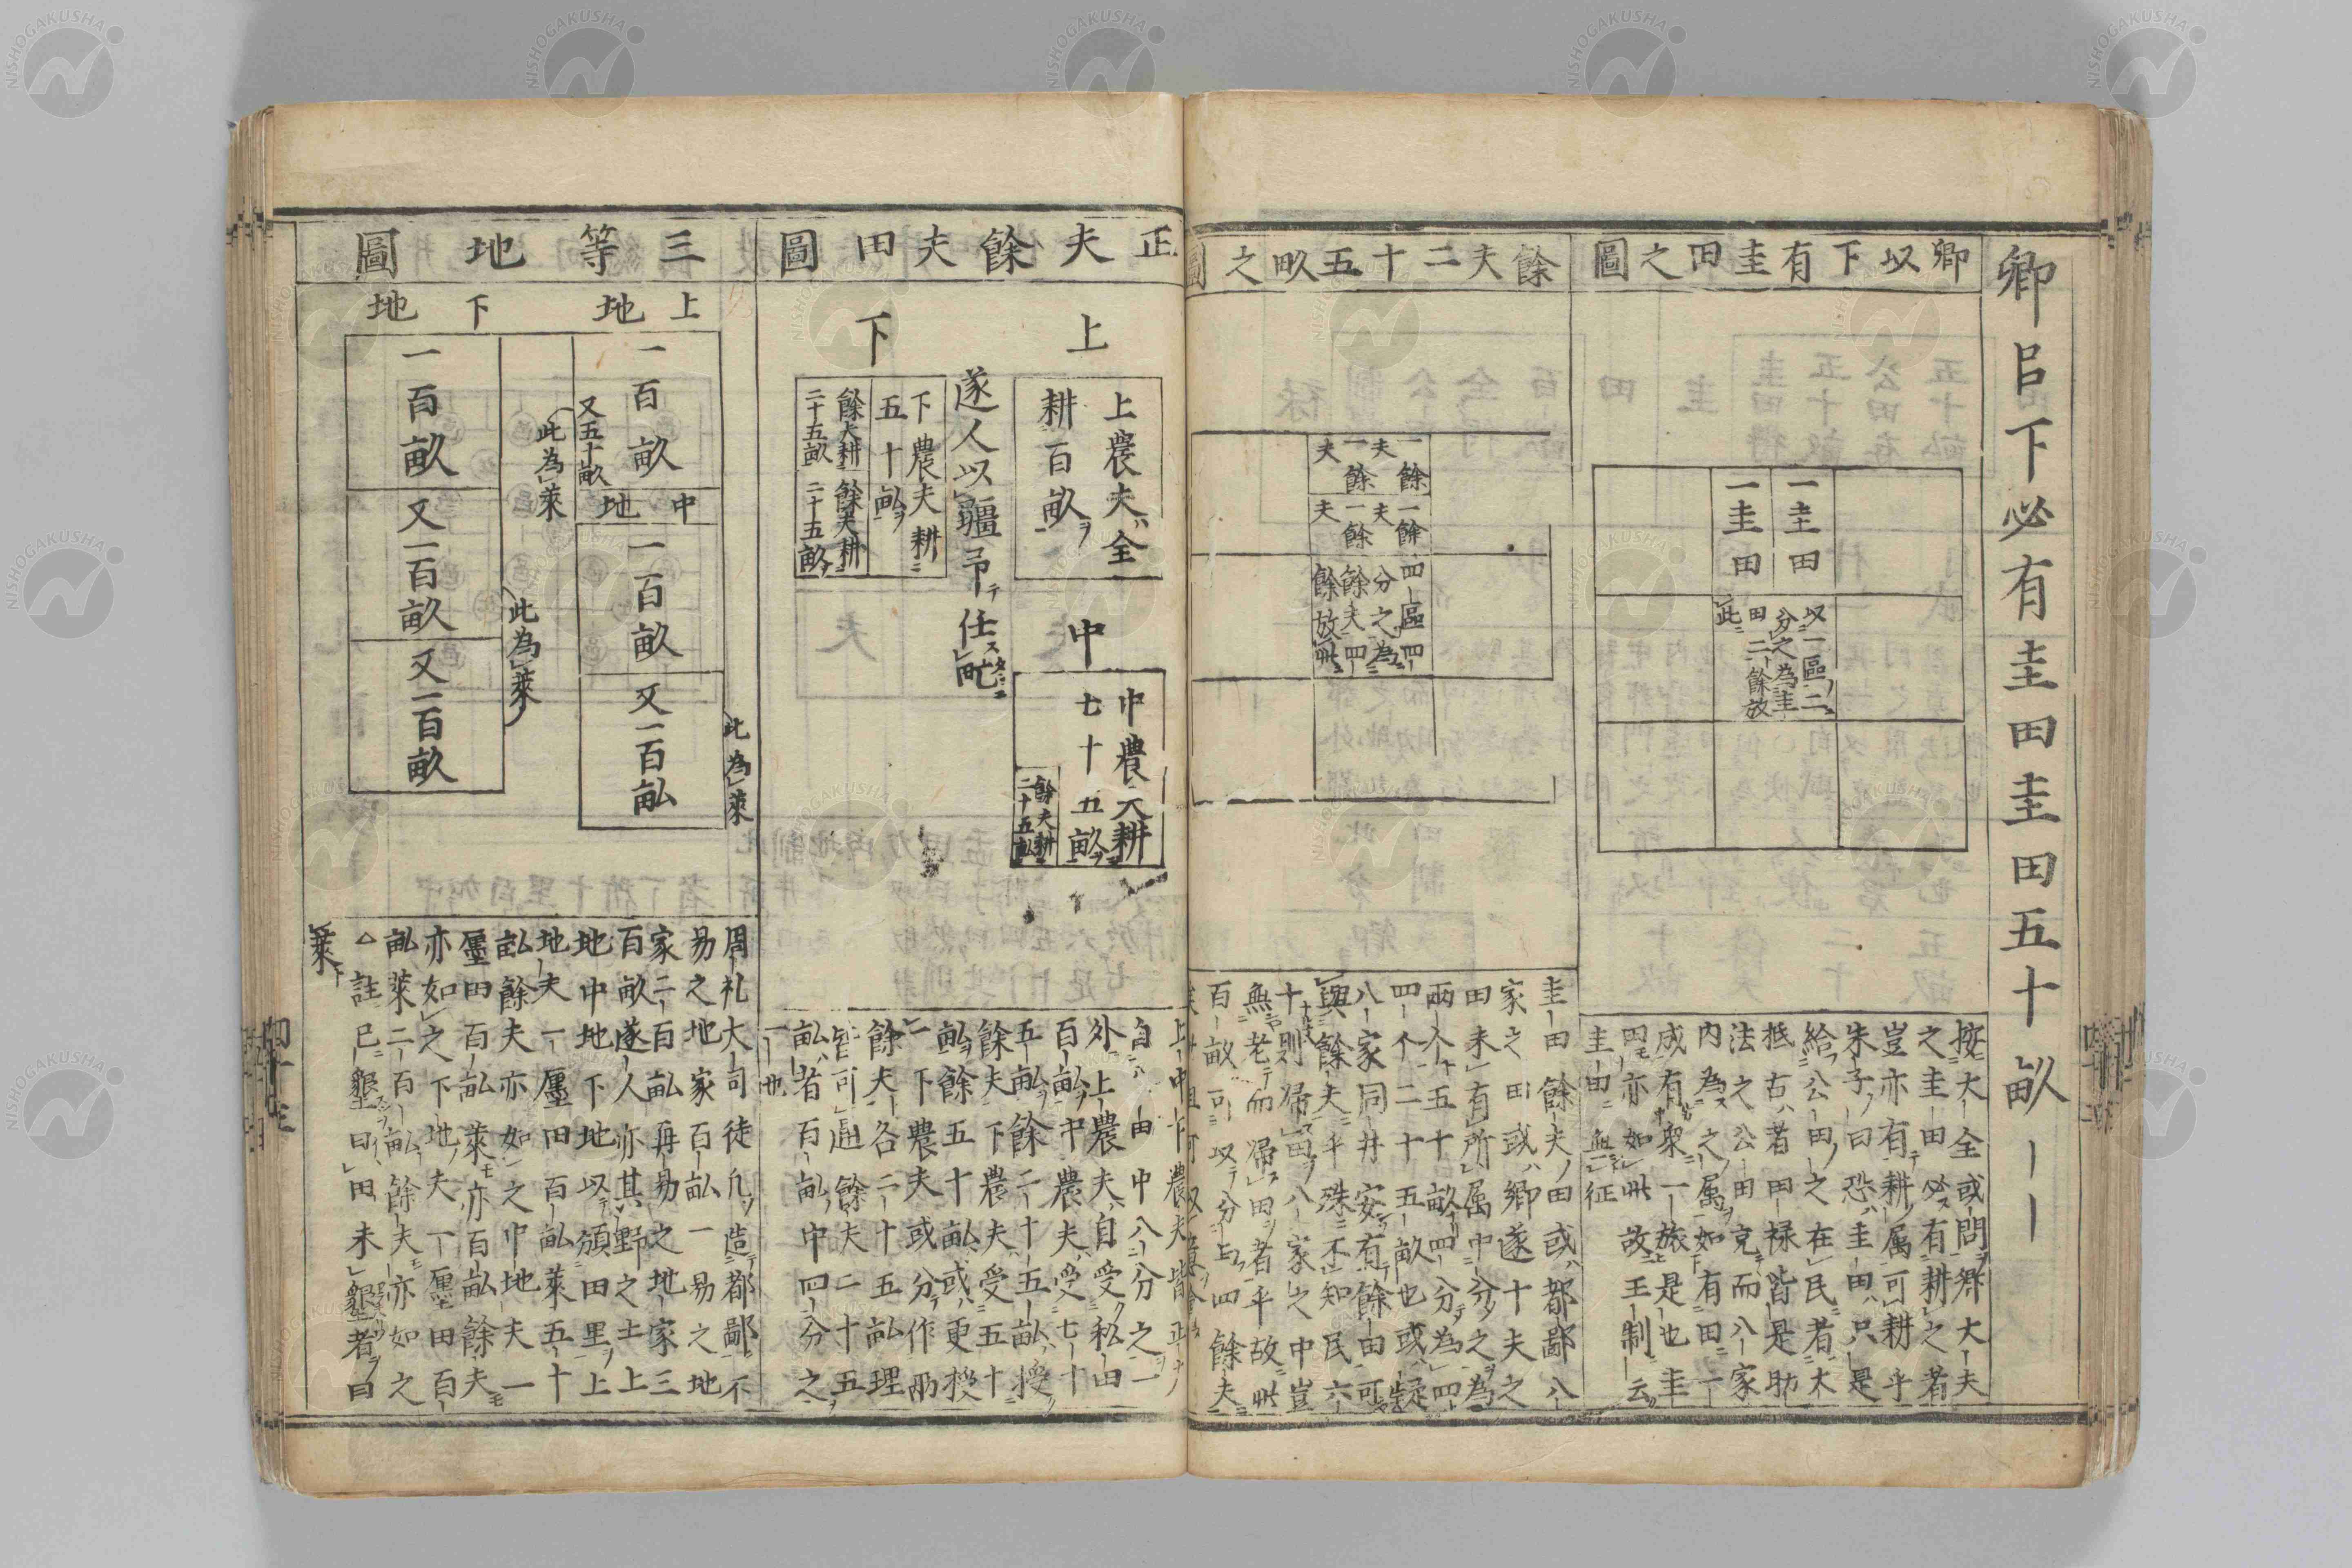 卿㠯下必有圭田圭田五十畝｜｜
卿以下有圭田之圖
一圭田
一圭田
以一區二
分之為圭
田二餘放
此
按大全或問卿大夫
之圭田必有耕之者
豈亦有耕属可耕乎
朱子曰恐圭田只是
給公田之在民者大
抵古者田禄皆是助
法之公田克而八家
内為之属如有田一
成有衆一旅是也圭
田亦如此故王制云
圭田無征
餘夫二十五畝之圖
一餘夫
一餘夫
一餘夫
一餘夫
四區四
分之為
餘夫四
餘放此
圭田餘夫田或都鄙八
家之田或卿遂十夫之
田未有所属中分之為
兩个五十畝四分為四
四个二十五畝也或疑
八家同井安有餘田可
與餘夫乎殊不知民六
十則帰田八家之中豈
無老而帰田者乎故此
百畝可以分与四餘夫
正夫餘夫田圖
上
上農夫全
耕百畝
中
中農夫耕
七十五畝
餘夫耕
二十五畝
遂人以疆予任甿
下
下農夫耕
五十畝
餘夫耕
二十五畝
餘夫耕
二十五畝
自由中八分之一
外上農夫自受私田
百畝中農夫受七十
五畝餘二十五畝授
餘夫下農夫受五十
畝餘五十畝或更授
一下農夫或分作兩
餘夫各二十五畝理
皆可通餘夫二十五
畝者百畝中四分之
一也
三等地圖
上地
一百畝
又五十畝
此為萊
中地
一百畝
又一百畝
此為萊
下地
一百畝
又一百畝
又一百畝
此為萊
周礼大司徒凡造都鄙不
易之地家百畝一易之地
家二百畝再易之地家三
百畝遂人亦其野之土上
地中地下地以頒田里上
地夫一廛田百畝萊五十
畝餘夫亦如之中地夫一
廛田百畝萊亦百畝餘夫
亦如之下地夫一廛田百
畝萊二百畝餘夫亦如之
△註已墾曰田未墾者曰
萊